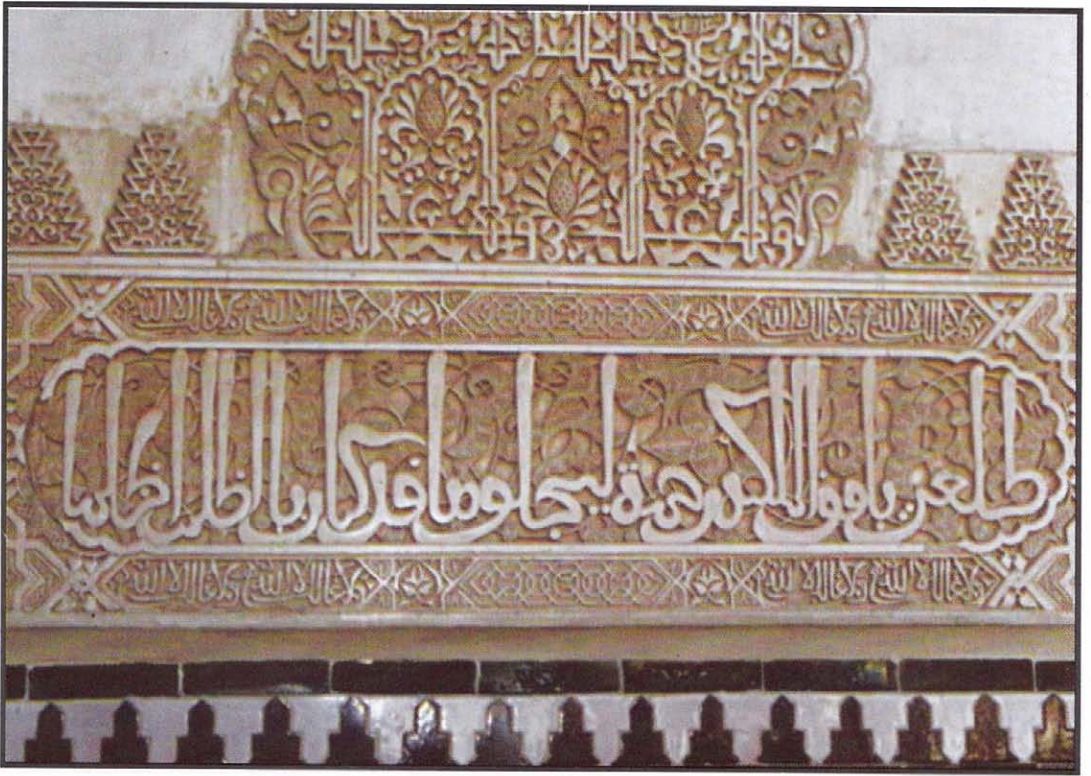 ولا غالب الا الله ولا غالب الا الله ولا غالب الا الله ولا غالب الا الله
طلعت بافق الملك رحمة ليجلو ما قد كان بالظلم اظلما
ولا غالب الا الله ولا غالب الا الله ولا غالب الا الله ولا غالب الا الله